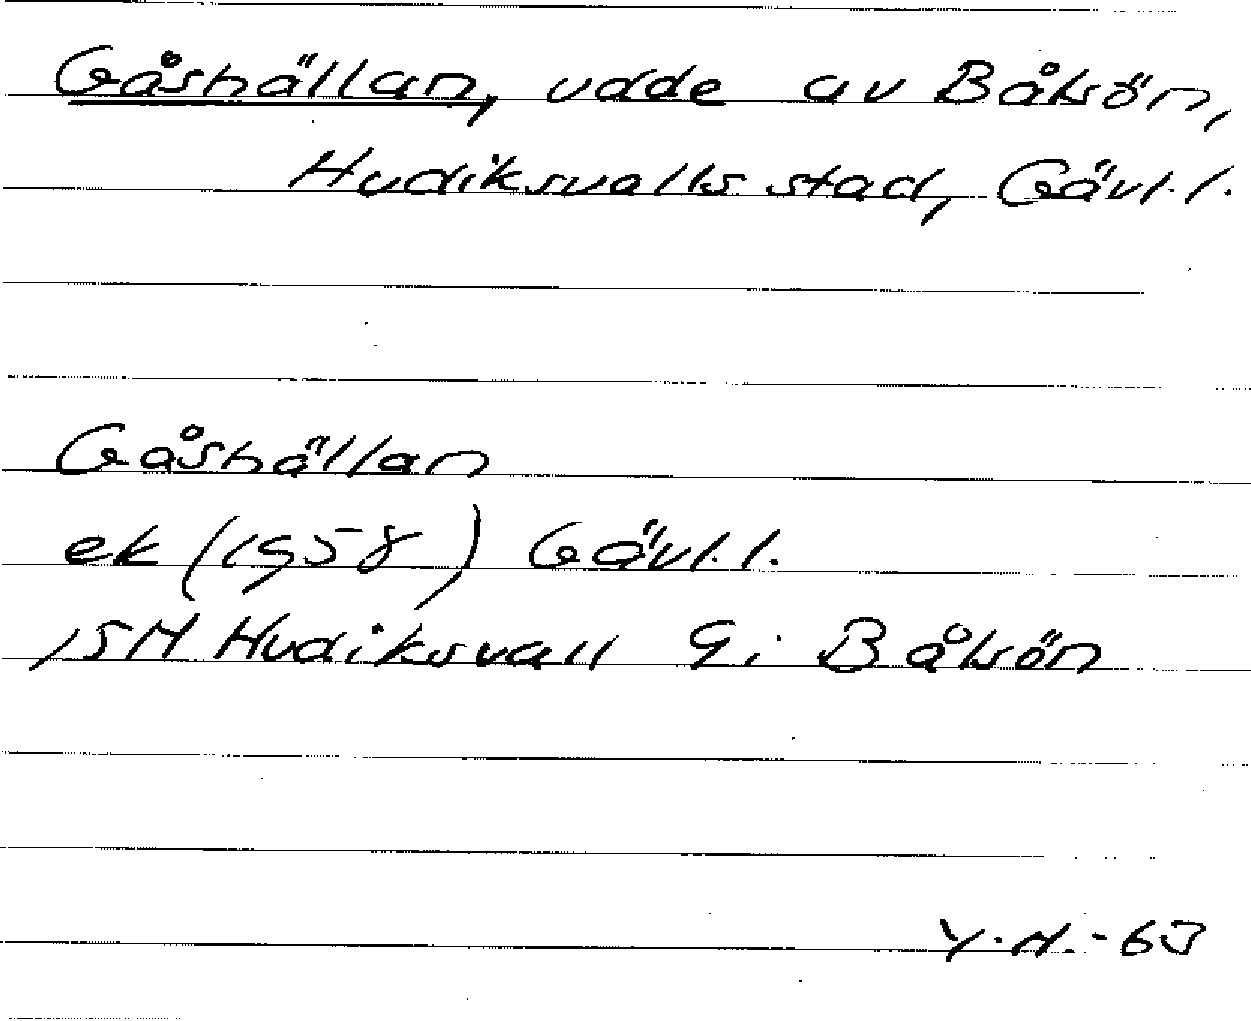 Gåshällan, udde av Båtsön,
Hudiksvalls stad, Gävl.l.
Gåshällan
ek (1958) Gävl.l.
15H Hudiksvall 9i Båtsön
Y.H.-63